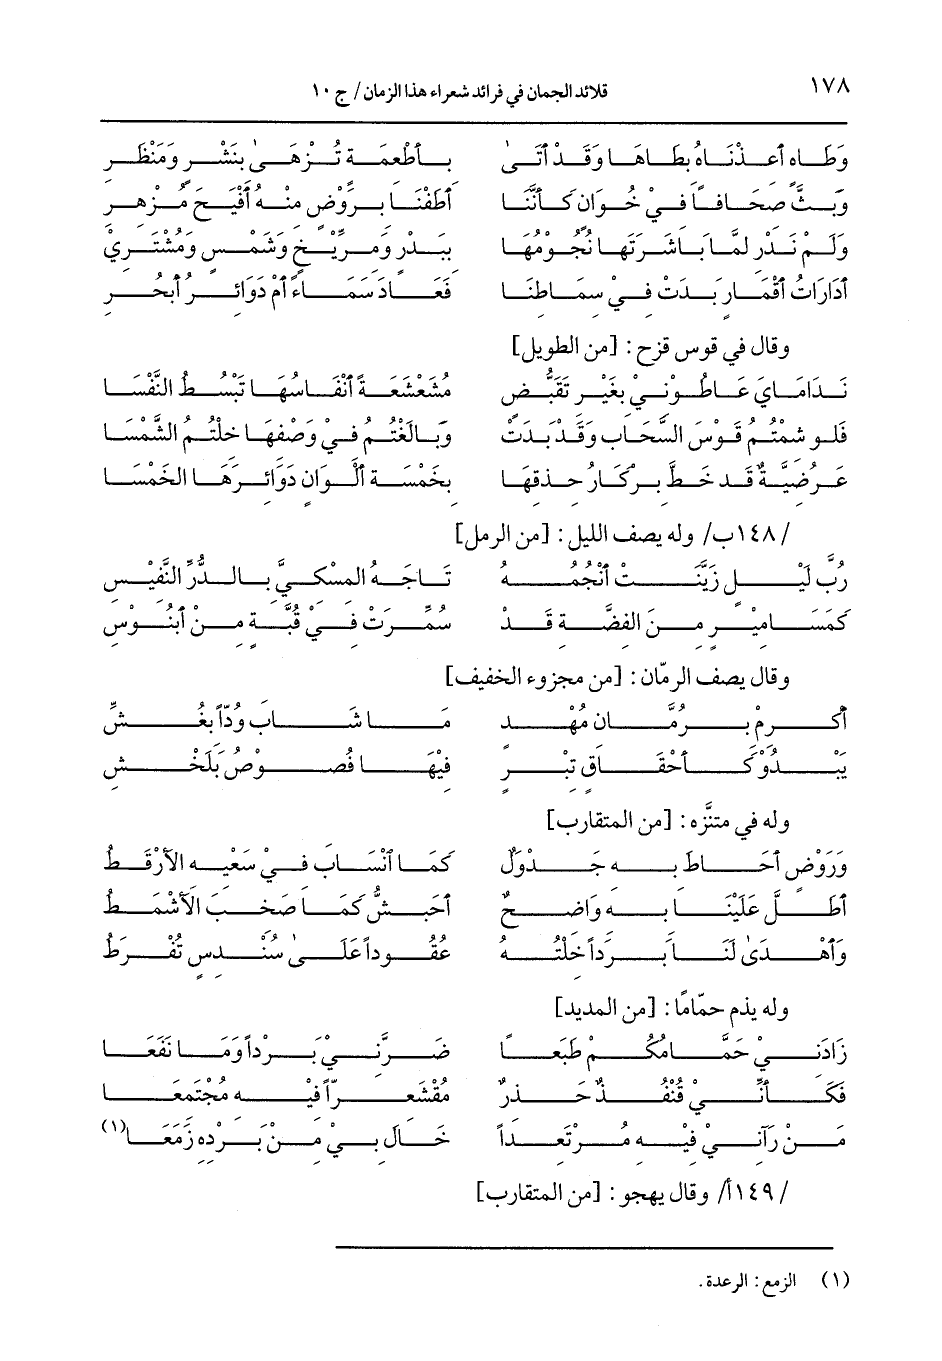 ١٧٨ قلائد الجمان في فرائد شعراء هذا الزمان / ج ١٠
وَطَاهٍ أعذْنَاهُ بِطَاهَا وَقَدْ أتَىٰ بِأطْعِمَةٍ تُزْهَىٰ بِنَشْرٍ وَمَنْظَرِ
وَبَثَّ صِحَافاً فِيْ خُوَانٍ كَأنَّنَا أطَفْنَا بِرَوْضٍ مِنْهُ أفْيَحَ مُزْهِرِ
وَلَمْ نَدْرِ لَمَّا بَاشَرَتْهَا نُجُومُهَا بِبَدْرٍ وَمِرِّيْخٍ وَشَمْسٍ وَمُشْتَرِيْ
أدَارَاتُ أقْمَارٍ بَدَتْ فِي سِمَاطِنَا فَعَادَ سَمَاءً أمْ دَوَائِرُ أبْحُرِ
وقال في قوس قزح: [من الطويل]
نَدَامَايَ عَاطُوْنِيْ بِغَيْرِ تَقَبُّضٍ مُشَعْشَعَةً أنْفَاسُهَا تَبْسُطُ النَّفْسَا
فَلو شِمْتُمُ قَوْسَ السَّحَابِ وَقَدْ بَدَتْ وَبَالَغْتُمُ فِيْ وَصْفِهَا خِلْتُمُ الشَّمْسَا
عَرُضِيَّةٌ قَد خَطَّ بِرْكَارُ حِذقِهَا بِخَمْسَةِ ألْوَانٍ دَوَائِرَهَا الخَمْسَا
/١٤٨ب/ وله يصف الليل: [من الرمل]
رُبَّ لَيْلٍ زَيَّنَتْ أنْجُمُهُ تَاجَهُ المِسْكِيَّ بِالدُّرِّ النَّفِيْسِ
كَمَسَامِيْرٍ مِنَ الفِضَّةِ قَدْ سُمِّرَتْ فِيْ قُبَّةٍ مِنْ أبْنُوْسِ
وقال يصف الرمّان: [من مجزوء الخفيف]
أكْرِمْ بِرُمَّانٍ مُهْدٍ مَا شَابَ وُدّاً بِغُشِّ
يَبْدُوْ كَأحْقَاقِ تِبْرٍ فِيْهَا فُصُوْصُ بَلَخْشِ
وله في متنَّزه: [من المتقارب]
وَرَوْضٍ أحَاطَ بِهِ جَدْوَلٌ كَمَا انْسَابَ فِيْ سَعْيِهِ الأرْقَطُ
أطَلَّ عَلَيْنَا بِهِ وَاضِحٌ أجَشُّ كَمَا صَخِبَ الأشْمَطُ
وَأهْدَىٰ لَنَا بَرَداً خِلْتَهُ عُقُوداً عَلَىٰ سُنْدسٍ تُفْرَطُ
وله يذم حمّامًا: [من المديد]
زَادَنِيْ حَمَّامُكُمْ طَبَعًا ضَرَّنِيْ بَرْداً وَمَا نَفَعَا
فَكَأنِّيْ قُنْفُذٌ حَذِرٌ مُقْشَعِرّاً فِيْهِ مُجْتَمِعَا
مَنْ رَآنِيْ فِيْهِ مُرْتَعِداً خَالَ بِيْ مِنْ بَرْدِهِ زَمَعَا(١)
/١٤٩أ/ وقال يهجو: [من المتقارب]
(١) الزمع: الرعدة.